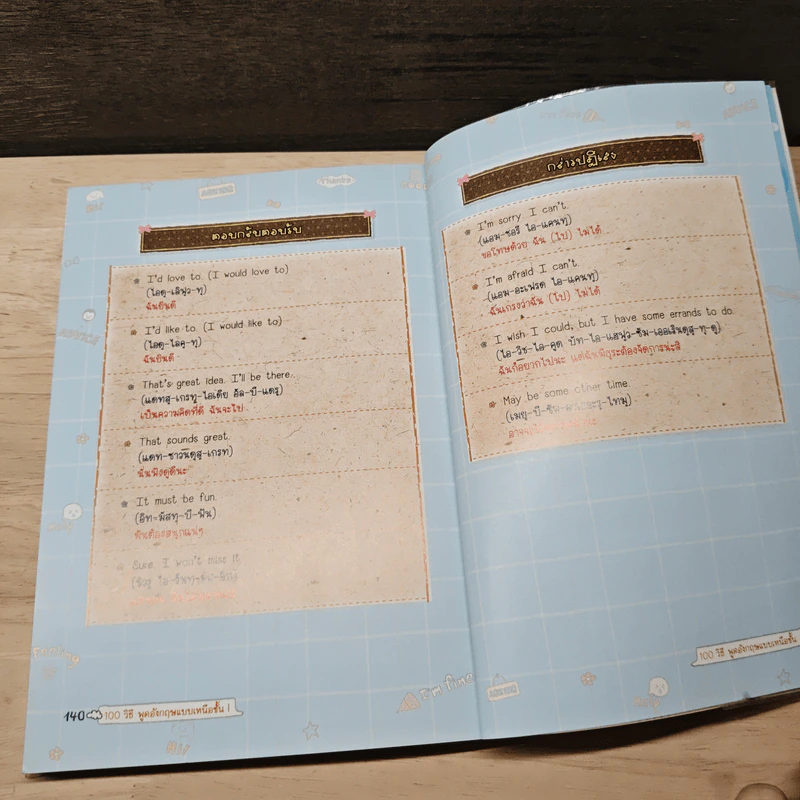 Thanks
ตอบกลับตอบรับ
I'd love to. (I would love to)
(ไอดฺ-เลิฟฺว-ทู)
ฉันยินดี
I'd like to. (I would like to)
(ไอดฺ-ไลคฺ-ทู)
ฉันยินดี
That's great idea. I'll be there.
(แดทสฺ-เกรทฺ-ไอเดีย อัล-บี-แดรฺ)
เป็นความคิดที่ดี ฉันจะไป
That sounds great.
(แดท-ซาวน์ดฺสฺ-เกรท)
ฉันฟังดูดีนะ
It must be fun.
(อิท-มัสทฺ-บี-ฟัน)
มันต้องสนุกแน่ๆ
Sure, I won't miss it.
140
100 วิธี พูดอังกฤษแบบเหนือชั้น !
Hi!
กล่าวปฏิเสธ
I'm sorry. I can't.
(แอม-ซอรี ไอ-แคนทฺ)
ขอโทษด้วย ฉัน (ไป) ไม่ได้
I'm afraid I can't.
(แอม-อะเฟรด ไอ-แคนทฺ)
ฉันเกรงว่าฉัน (ไป) ไม่ได้
I wish I could, but I have some errands to do.
(ไอ-วิช-ไอ-คูด บัท-ไอ-แฮฟฺว-ซัม-เออเรินดฺสฺ-ทู-ดู)
ฉันก็อยากไปนะ แต่ฉันมีธุระต้องจัดการน่ะสิ
May be some other time.
I'm fine
100 วิธี พูดอังกฤษแบบเหนือชั้น